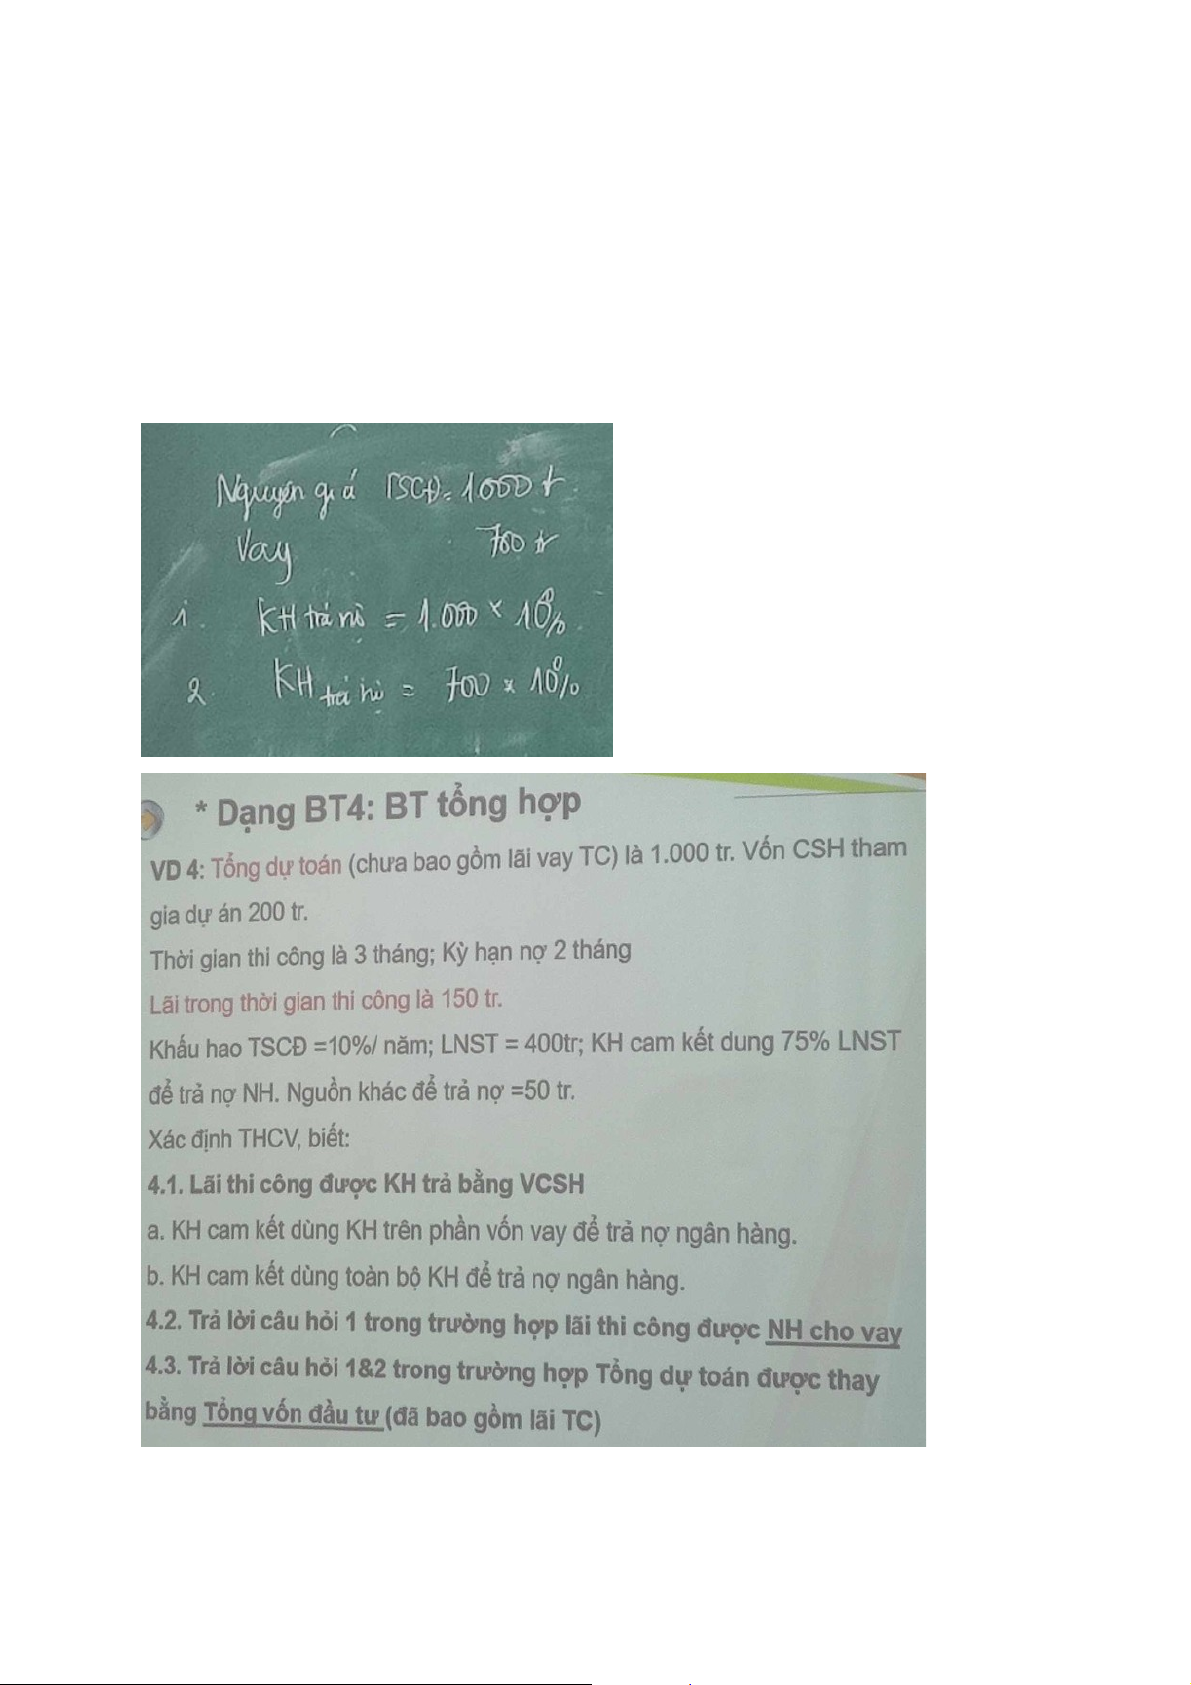 Nguyên giá TSCĐ = 1000 tr
Vay 700 tr
1. KH trả nợ = 1.000 × 10%
2. KH trả nợ = 700 × 10%
* Dạng BT4: BT tổng hợp
VD 4: Tổng dự toán (chưa bao gồm lãi vay TC) là 1.000 tr. Vốn CSH tham
gia dự án 200 tr.
Thời gian thi công là 3 tháng; Kỳ hạn nợ 2 tháng
Lãi trong thời gian thi công là 150 tr.
Khấu hao TSCĐ =10%/ năm; LNST = 400tr; KH cam kết dung 75% LNST
để trả nợ NH. Nguồn khác để trả nợ =50 tr.
Xác định THCV, biết:
4.1. Lãi thi công được KH trả bằng VCSH
a. KH cam kết dùng KH trên phần vốn vay để trả nợ ngân hàng.
b. KH cam kết dùng toàn bộ KH để trả nợ ngân hàng.
4.2. Trả lời câu hỏi 1 trong trường hợp lãi thi công được NH cho vay
4.3. Trả lời câu hỏi 1&2 trong trường hợp Tổng dự toán được thay
bằng Tổng vốn đầu tư (đã bao gồm lãi TC)